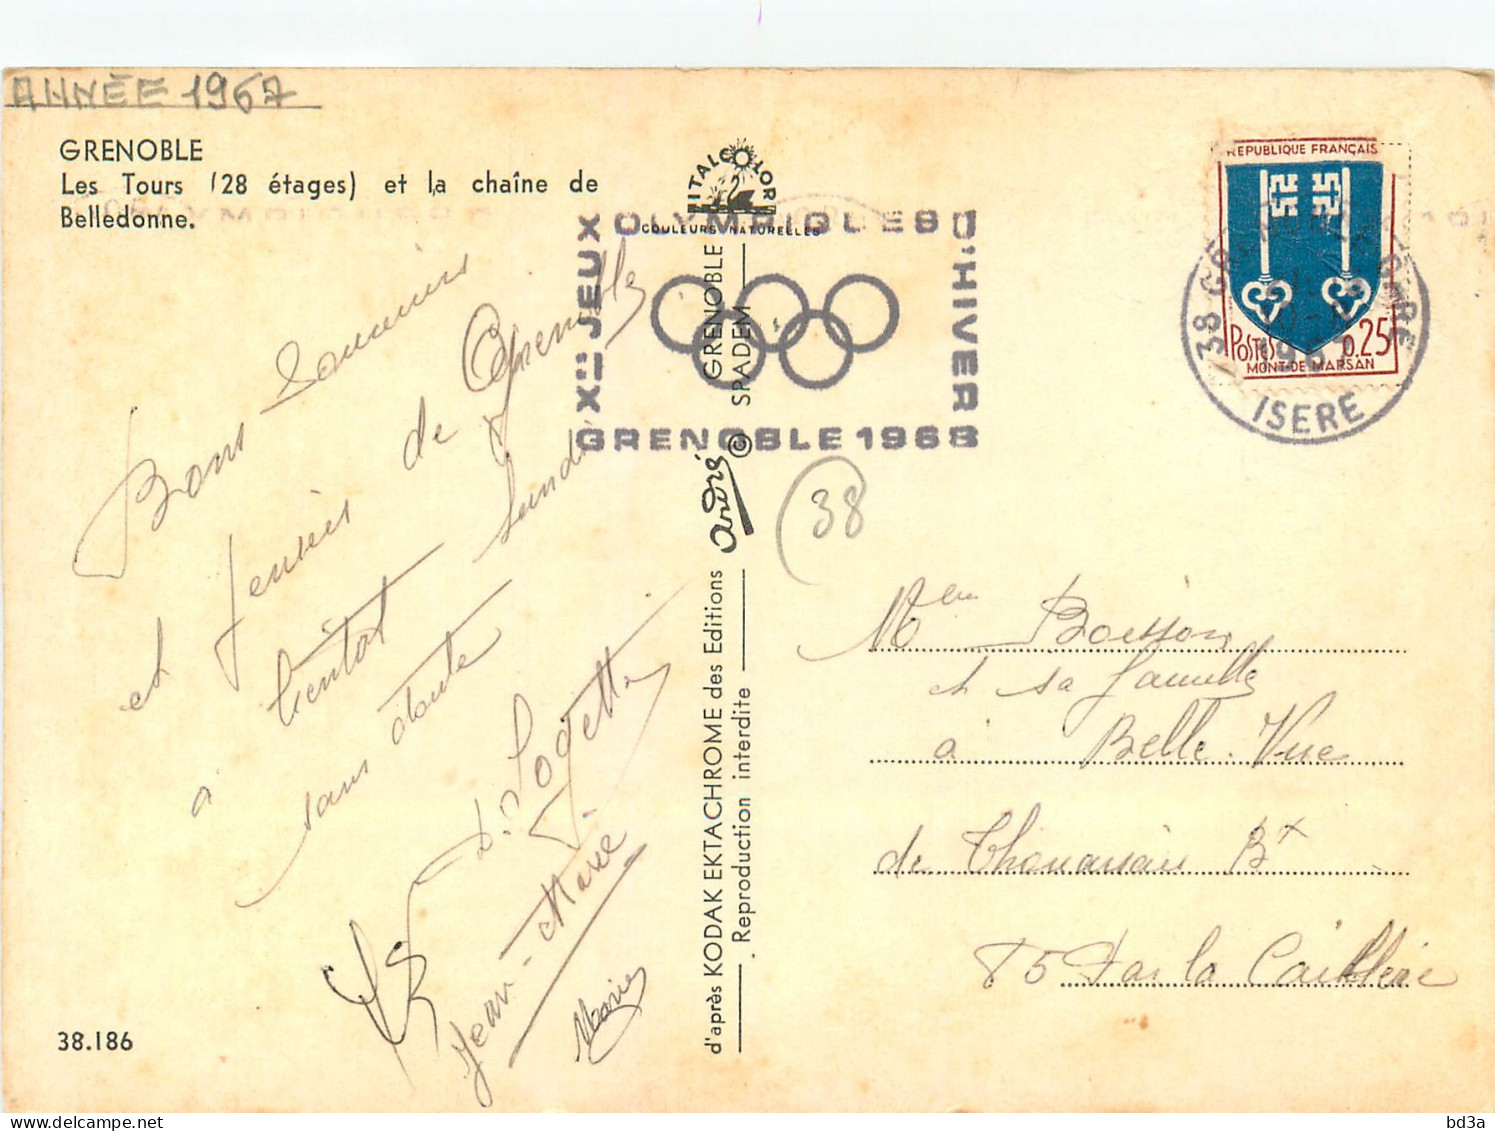 ANNÉE 1967
GRENOBLE
Les Tours (28 étages) et la chaîne de
Belledonne.
Bons Souvenirs
et pensées de Grenoble
à bientot lundi
sans doute
Jean-Marie
38.186
ITALCOLOR
COULEURS NATURELLES
GRENOBLE
SPADEM
©
andré
d'après KODAK EKTACHROME des Editions
Reproduction interdite
XES JEUX OLYMPIQUES D'HIVER
GRENOBLE 1968
REPUBLIQUE FRANÇAIS
POSTES 0.25
MONT-DE-MARSAN
38 GRENOBLE GARE
1967
ISERE
38
Mme Boisson
et sa famille
à Belle-Vue
de Thouarsais Bx
85 Par la Caillère
delcampe.net
bd3a